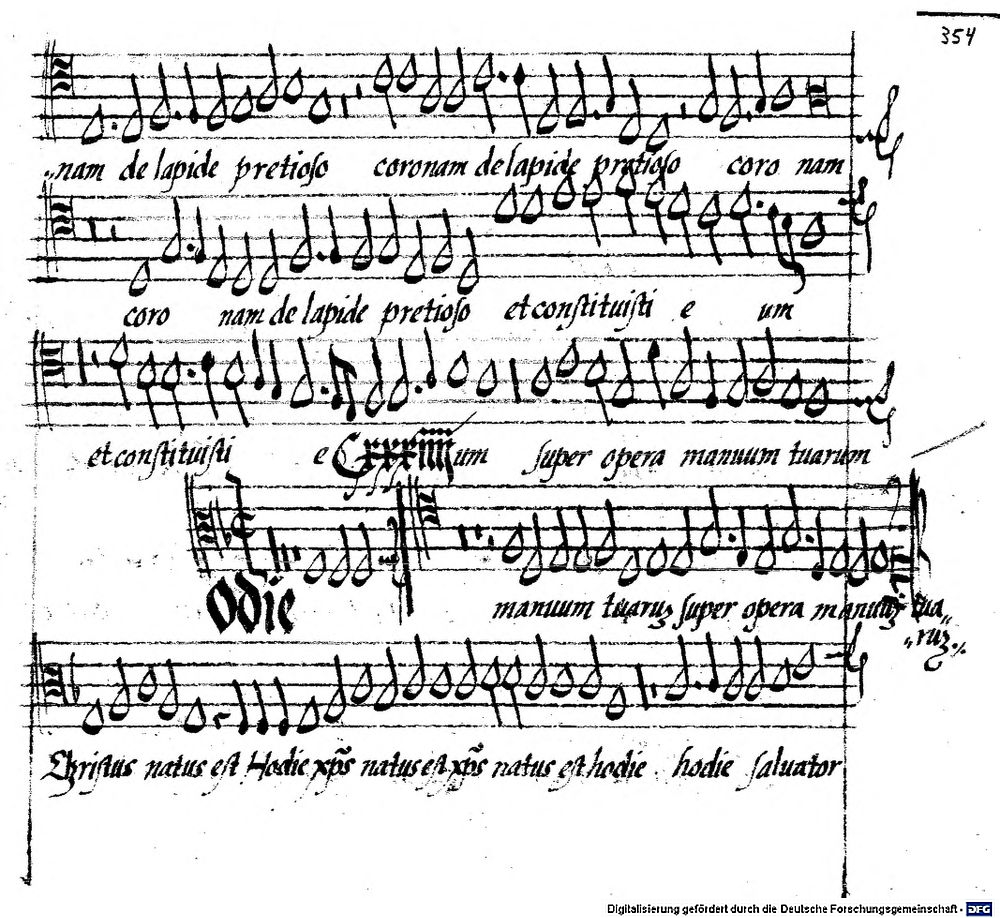 354
„nam de lapide pretioso coronam de lapide pretioso coro nam
coro nam de lapide pretioso et constituisti e um
et constituisti e um super opera manuum tuarum
Cxxxiiii
manuum tuaruꝫ super opera manuuꝫ tua„
„ruꝫ.
Odie
Christus natus est Hodie xp̄s natus est xp̄s natus est hodie hodie saluator
Digitalisierung gefördert durch die Deutsche Forschungsgemeinschaft - DFG